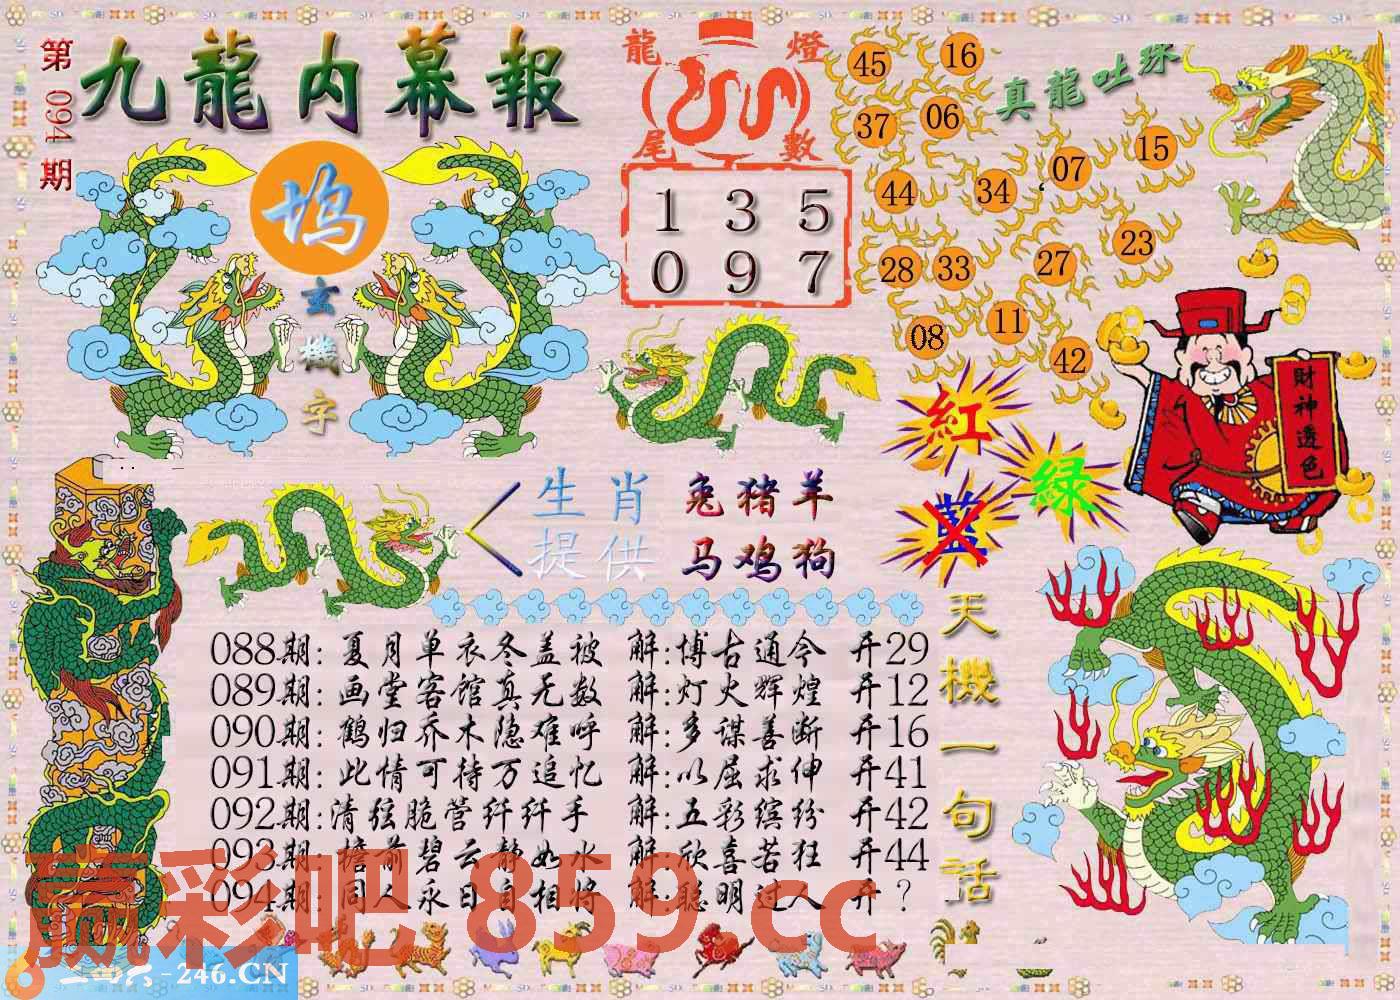 第094期
九龍内幕報
龍燈
尾數
1 3 5
0 9 7
真龍吐珠
45 16
37 06
07 15
44 34
23
28 33 27
08 11 42
坞
玄機字
財神透色
紅
绿
蓝
生肖 兔猪羊
提供 马鸡狗
天機一句話
088期: 夏月单衣冬盖被 解:博古通今 开29
089期: 画堂客馆真无数 解:灯火辉煌 开12
090期: 鹤归乔木隐难呼 解:多谋善断 开16
091期: 此情可待万追忆 解:以屈求伸 开41
092期: 清弦脆管纤纤手 解:五彩缤纷 开42
093期: 檐前碧云静如水 解:欣喜若狂 开44
094期: 同人永日自相将 解:聪明过人 开？
赢彩吧 859.cc
二四六-246.CN